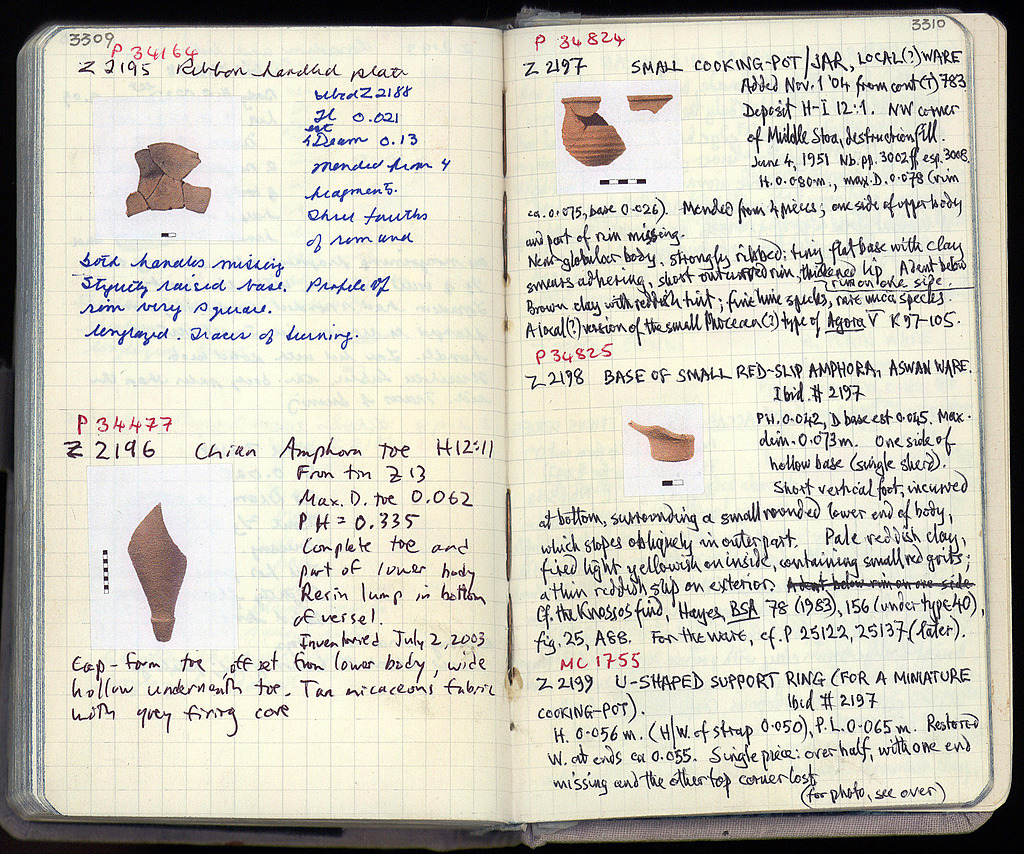 3309
P 34164
Z 2195 Ribbon handled plate
Ibid Z 2188
H 0.021
est
Diam 0.13
Mended from 4
fragments.
Three fourths
of rim and
both handles missing
Slightly raised base. Profile of
rim very square.
Unglazed. Traces of burning.
P 34477
Z 2196 Chian Amphora toe H12:11
From tin Z 13
Max. D. toe 0.062
PH = 0.335
Complete toe and
part of lower body
Resin lump in bottom
of vessel.
Inventoried July 2, 2003
Cap-form toe offset from lower body, wide
hollow underneath toe. Tan micaceous fabric
with grey firing core
3310
P 34824
Z 2197 SMALL COOKING-POT/JAR, LOCAL(?) WARE
Added Nov. 1 '04 from cont(T) 783
Deposit H-I 12:1. NW corner
of Middle Stoa, destruction fill.
June 4, 1951 Nb. pp. 3002ff esp. 3008.
H. 0.080m., max. D. 0.078 (rim
ca. 0.075, base 0.026). Mended from 4 pieces; one side of upper body
and part of rim missing.
Near-globular body, strongly ribbed; tiny flat base with clay
smears adhering, short outturned rim, thickened lip. A dent below
rim on one side.
Brown clay with reddish tint; fine lime species, rare mica species.
A local(?) version of the small Phocean(?) type of Agora V K 97-105.
P 34825
Z 2198 BASE OF SMALL RED-SLIP AMPHORA, ASWAN WARE.
Ibid. # 2197
PH. 0.042, D base est 0.045. Max.
dim. 0.073m. One side of
hollow base (single sherd).
Short vertical foot, incurved
at bottom, surrounding a small rounded lower end of body,
which slopes obliquely in outer part. Pale reddish clay,
fired light yellowish on inside, containing small red grits;
a thin reddish slip on exterior. A dent below rim on one side
Cf. the Knossos find, Hayes, BSA 78 (1983), 156 (under type 40),
fig. 25, A88. For the ware, cf. P 25122, 25137 (later).
MC 1755
Z 2199 U-SHAPED SUPPORT RING (FOR A MINIATURE
COOKING-POT). Ibid # 2197
H. 0.056 m. (H/W. of strap 0.050), P.L. 0.065 m. Restored
W. at ends ca 0.055. Single piece: over half, with one end
missing and the other top corner lost
(for photo, see over)